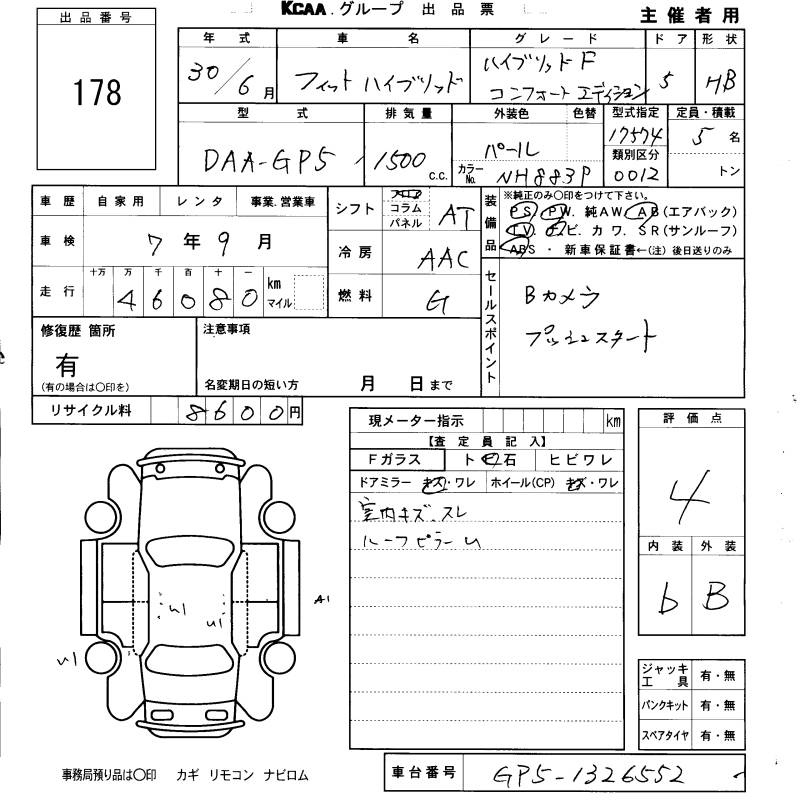 KCAA.グループ 出品票
主催者用
出品番号
178
年式 車名 グレード ドア 形状
30/6月 フィット ハイブリッド ハイブリッドF 5 HB
コンフォートエディション
型式 排気量 外装色 色替 型式指定 定員・積載
DAA-GP5 1500 c.c. パール 17574 5 名
類別区分
カラーNo. NH883P 0012 トン
車歴 自家用 レンタ 事業.営業車
シフト フロア コラム パネル AT
装備品
※純正のみ〇印をつけて下さい。
PS. PW. 純AW. AB(エアバック)
TV. ナビ. カワ. SR(サンルーフ)
ABS ・ 新車保証書←(注) 後日送りのみ
車検 7年9月
冷房 AAC
走行 十万 万 千 百 十 一 km マイル
46080
燃料 G
セールスポイント
Bカメラ
プッシュスタート
修復歴 箇所
有
(有の場合は〇印を)
注意事項
名変期日の短い方 月 日まで
リサイクル料 8600円
現メーター指示 km
【査定員記入】
Fガラス ト ビ 石 ヒビワレ
ドアミラー キズ・ワレ ホイール(CP) キズ・ワレ
室内キズ.スレ
ルーフピラーU
評価点
4
内装 外装
b B
U1
U1
A1
U1
ジャッキ工具 有・無
パンクキット 有・無
スペアタイヤ 有・無
事務局預り品は〇印 カギ リモコン ナビロム
車台番号 GP5-1326552